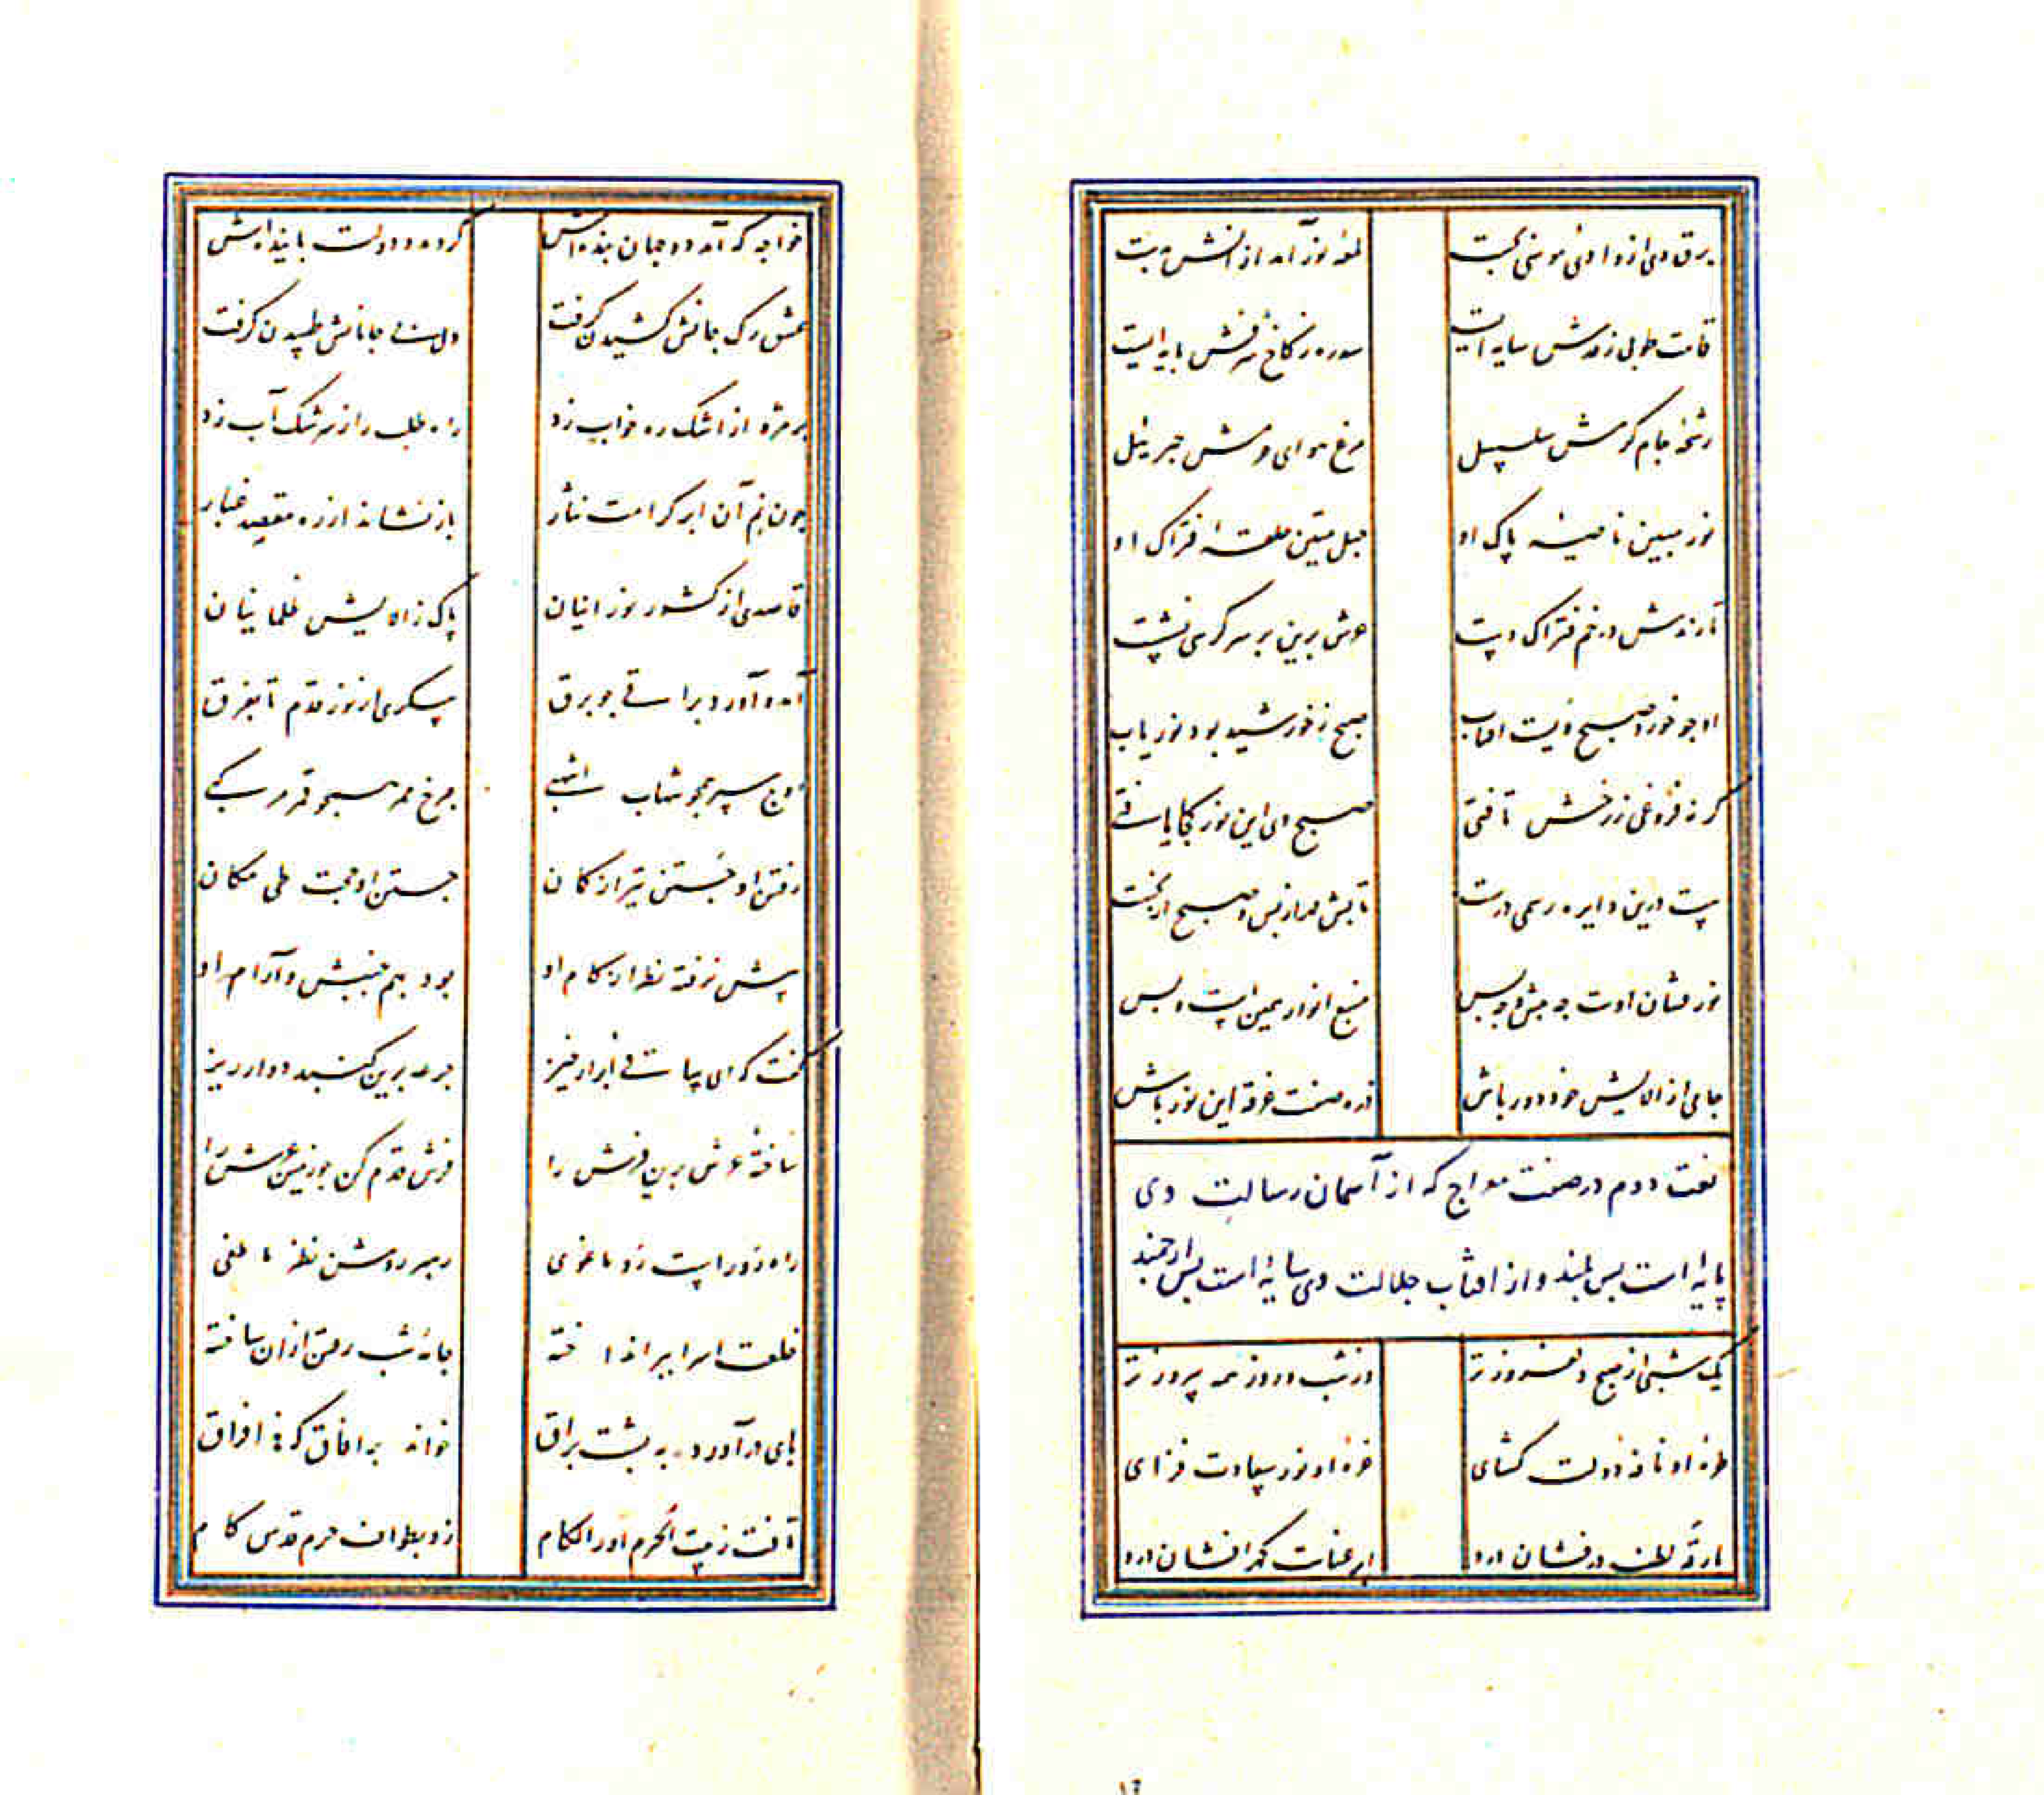 برق وی از وادی موسی بجست لمعه نور آمد از آتش بدست
قامت طوبی ز قدش سایه ایست سدره ز کاخ شرفش پایه ایست
رشحه جام کرمش سلسبیل مرغ هوای حرمش جبرئیل
نور مبین ناصیه پاک او حبل متین حلقه فتراک او
تا زندش در خم فتراک دست عرش برین بر سر کرسی نشست
او چو خور و صبح دویست آفتاب صبح ز خورشید بود نور یاب
گر نه فروغی ز رخش تافتی صبح وی این نور کجا یافتی
نیست درین دایره رسمی درست تابش مهر از پس و صبح از نخست
نور فشان اوست چه پیش و چه پس منبع انوار همین است و بس
جامی از آلایش خود دور باش ذره صفت غرقه این نور باش
نعت دوم در صفت معراج که از آسمان رسالت وی
پایه است بس بلند و از آفتاب جلالت وی سایه است بس ارجمند
یک شبی از صبح دلفروزتر وز شب و روز همه پیروزتر
طره او نافه دولت گشای غره او نور سعادت فزای
بارقه لطف درفشان درو ابر عنایت گهرافشان درو
خواجه که آمد دو جهان بنده اش کرده دو دولت پاینده اش
عشق رگ جانش کشیدن گرفت دل پی جانانش طپیدن گرفت
بر مژه از اشک ره خواب زد راه طلب را ز سرشک آب زد
چون نم آن ابر کرامت نثار باز نشاند از ره مقصد غبار
قاصدی از کشور نورانیان پاک ز آلایش ظلمانیان
آمد و آورد براقی چو برق پیکری از نور قدم تا بفرق
اوج سپر همچو شهاب اشهبی چرخ ممر همچو قمر مرکبی
رفتن او جستن تیر از کمان جستن او حجت طی مکان
پیش نرفته نظر از کام او بود بهم جنبش و آرام او
گفت که ای پیاپی از راز خیز جرعه برین گنبد دوار ریز
ساخته عرش برین فرش را فرش قدم کن چو زمین عرش را
راه نو راست ز و ما غوی رهبر روشن نظر ما طغی
خلعت اسرا ببر انداخته جامه شب رفتن از آن ساخته
پای در آورد به پشت براق خواند به آفاق که هذا فراق
تافت ز بیت الحرم اورا لگام زد بطواف حرم قدس کام
۱۲